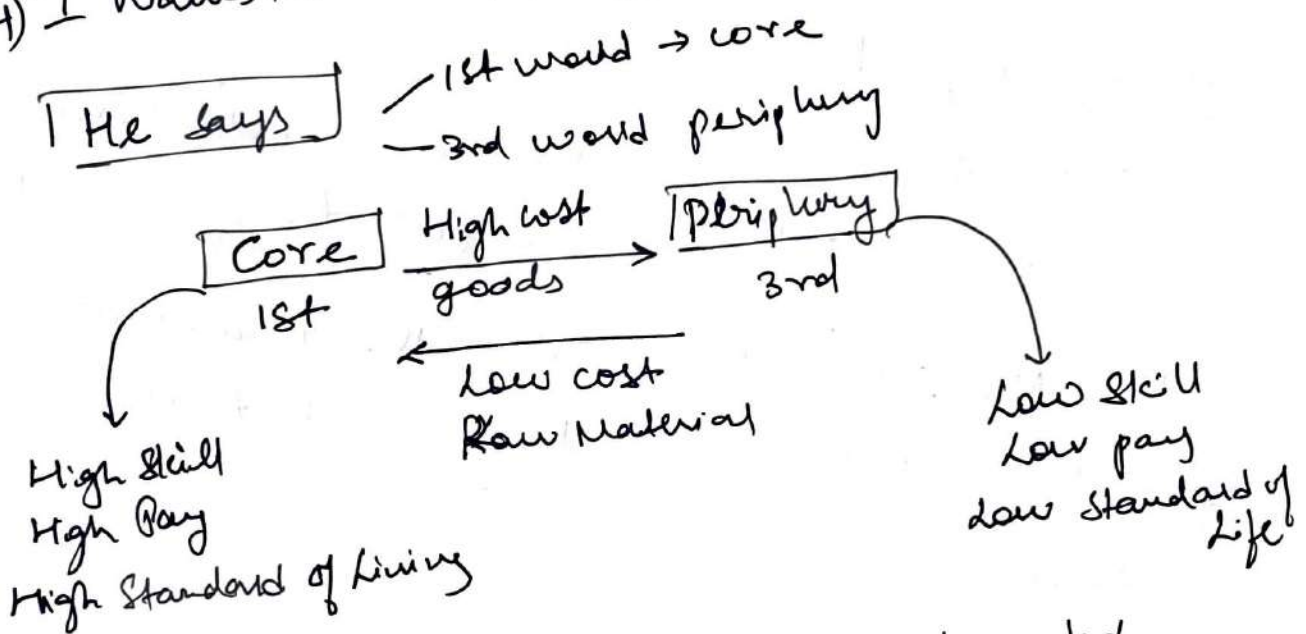 4) I
He says
1st world → core
3rd world periphery
Core
1st
High cost
goods
Periphery
3rd
Low cost
Raw Material
High Skill
High Pay
High Standard of Living
Low Skill
Low pay
Low Standard of
Life